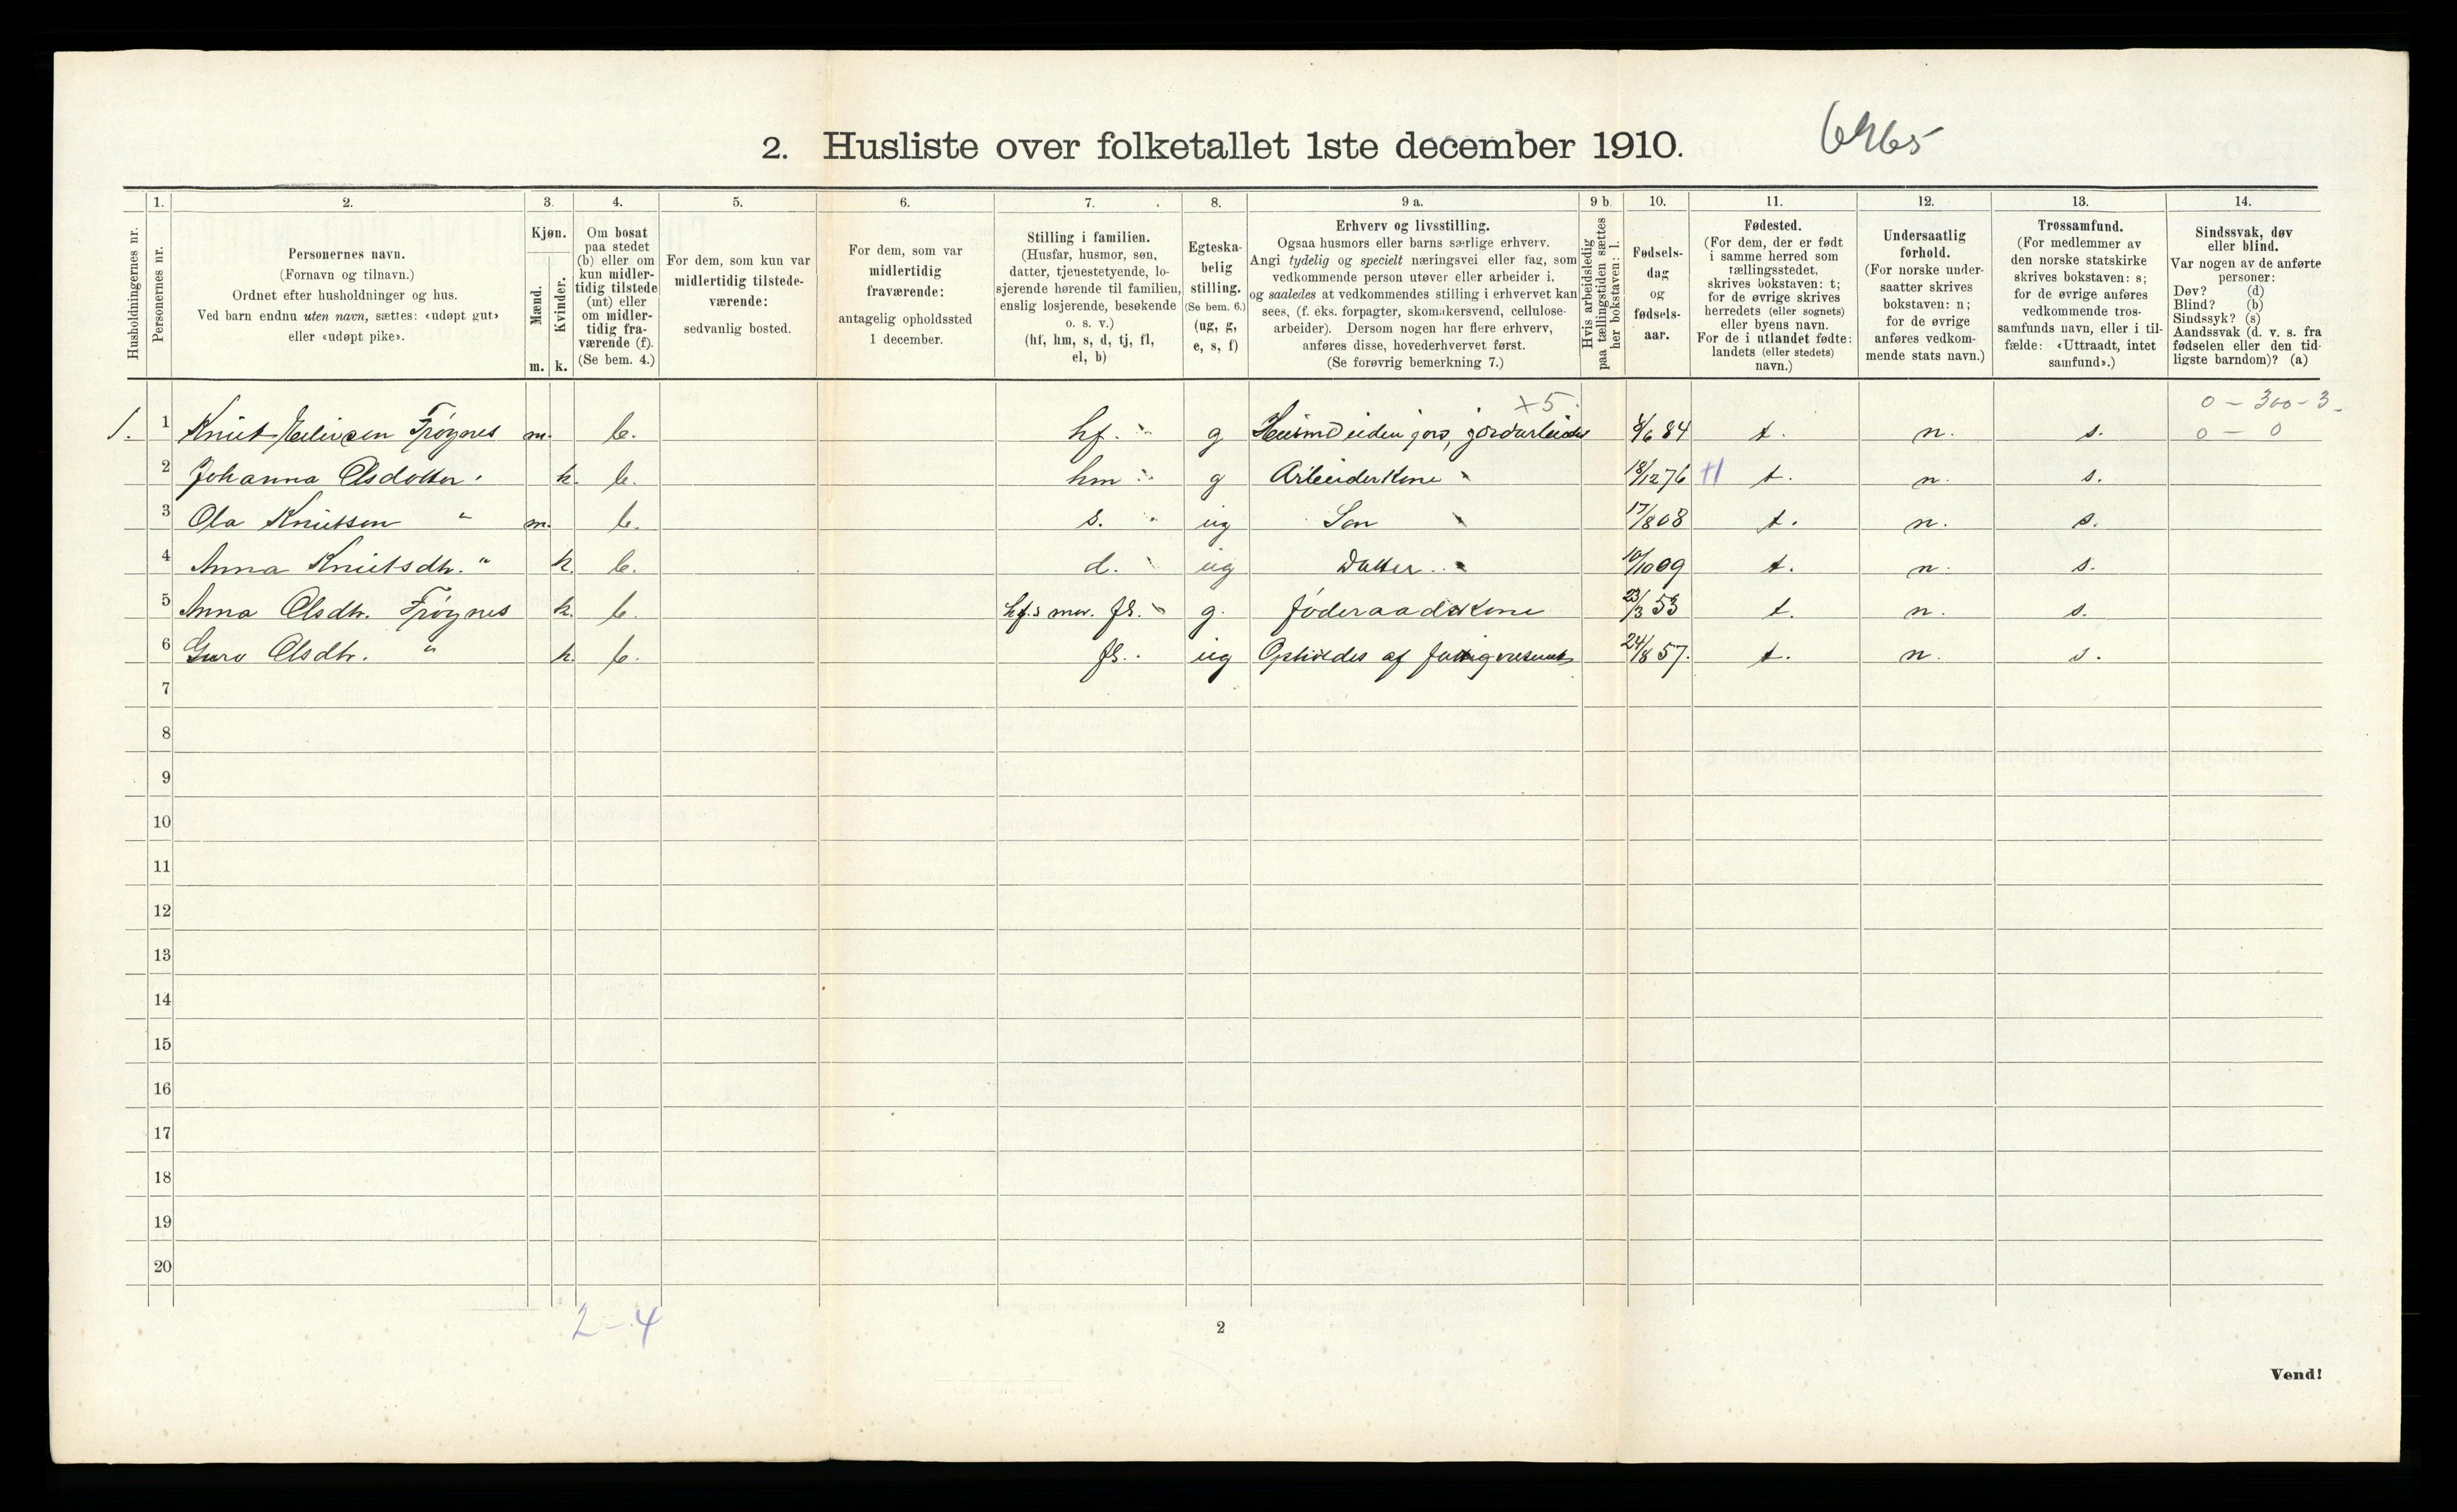 2. Husliste over folketallet 1ste december 1910.
6465
Husholdningernes nr.
1.
Personernes nr.
2.
Personernes navn.
(Fornavn og tilnavn.)
Ordnet efter husholdninger og hus.
Ved barn endnu uten navn, sættes: «udøpt gut»
eller «udøpt pike».
3.
Kjøn.
Mænd.
Kvinder.
m. k.
4.
Om bosat
paa stedet
(b) eller om
kun midler-
tidig tilstede
(mt) eller
om midler-
tidig fra-
værende (f).
(Se bem. 4.)
5.
For dem, som kun var
midlertidig tilstede-
værende:
sedvanlig bosted.
6.
For dem, som var
midlertidig
fraværende:
antagelig opholdssted
1 december.
7.
Stilling i familien.
(Husfar, husmor, søn,
datter, tjenestetyende, lo-
sjerende hørende til familien,
enslig losjerende, besøkende
o. s. v.)
(hf, hm, s, d, tj, fl,
el, b)
8.
Egteska-
belig
stilling.
(Se bem. 6.)
(ug, g,
e, s, f)
9 a.
Erhverv og livsstilling.
Ogsaa husmors eller barns særlige erhverv.
Angi tydelig og specielt næringsvei eller fag, som
vedkommende person utøver eller arbeider i,
og saaledes at vedkommendes stilling i erhvervet kan
sees, (f. eks. forpagter, skomakersvend, cellulose-
arbeider). Dersom nogen har flere erhverv,
anføres disse, hovederhvervet først.
(Se forøvrig bemerkning 7.)
9 b.
Hvis arbeidsledig
paa tællingstiden sættes
her bokstaven: l.
10.
Fødsels-
dag
og
fødsels-
aar.
11.
Fødested.
(For dem, der er født
i samme herred som
tællingsstedet,
skrives bokstaven: t;
for de øvrige skrives
herredets (eller sognets)
eller byens navn.
For de i utlandet fødte:
landets (eller stedets)
navn.)
12.
Undersaatlig
forhold.
(For norske under-
saatter skrives
bokstaven: n;
for de øvrige
anføres vedkom-
mende stats navn.)
13.
Trossamfund.
(For medlemmer av
den norske statskirke
skrives bokstaven: s;
for de øvrige anføres
vedkommende tros-
samfunds navn, eller i til-
fælde: «Uttraadt, intet
samfund».)
14.
Sindssvak, døv
eller blind.
Var nogen av de anførte
personer:
Døv? (d)
Blind? (b)
Sindssyk? (s)
Aandssvak (d. v. s. fra
fødselen eller den tid-
ligste barndom)? (a)
x5 0 - 300 - 3
1. 1 Knut Eilivsen Frøynes m. b. hf. g Husmd uden jord, jordarbeider 8/6 84 t. n. s. 0 - 0
2 Johanna Olsdotter " k. b. hm g Arbeiderkone 18/12 76 H t. n. s.
3 Ola Knutsen " m. b. s. ug Søn 17/8 08 t. n. s.
4 Anna Knutsdtr. " k. b. d. ug Datter 10/10 09 t. n. s.
5 Anna Olsdtr. Frøynes k. b. hf.s mor. fl. g. føderaadskone 23/3 53 t. n. s.
6 Guro Olsdtr. " k. b. fl. ug Opholdes af fattigvæsenet 24/8 57. t. n. s.
7
8
9
10
11
12
13
14
15
16
17
18
19
20
2-4
2
Vend!